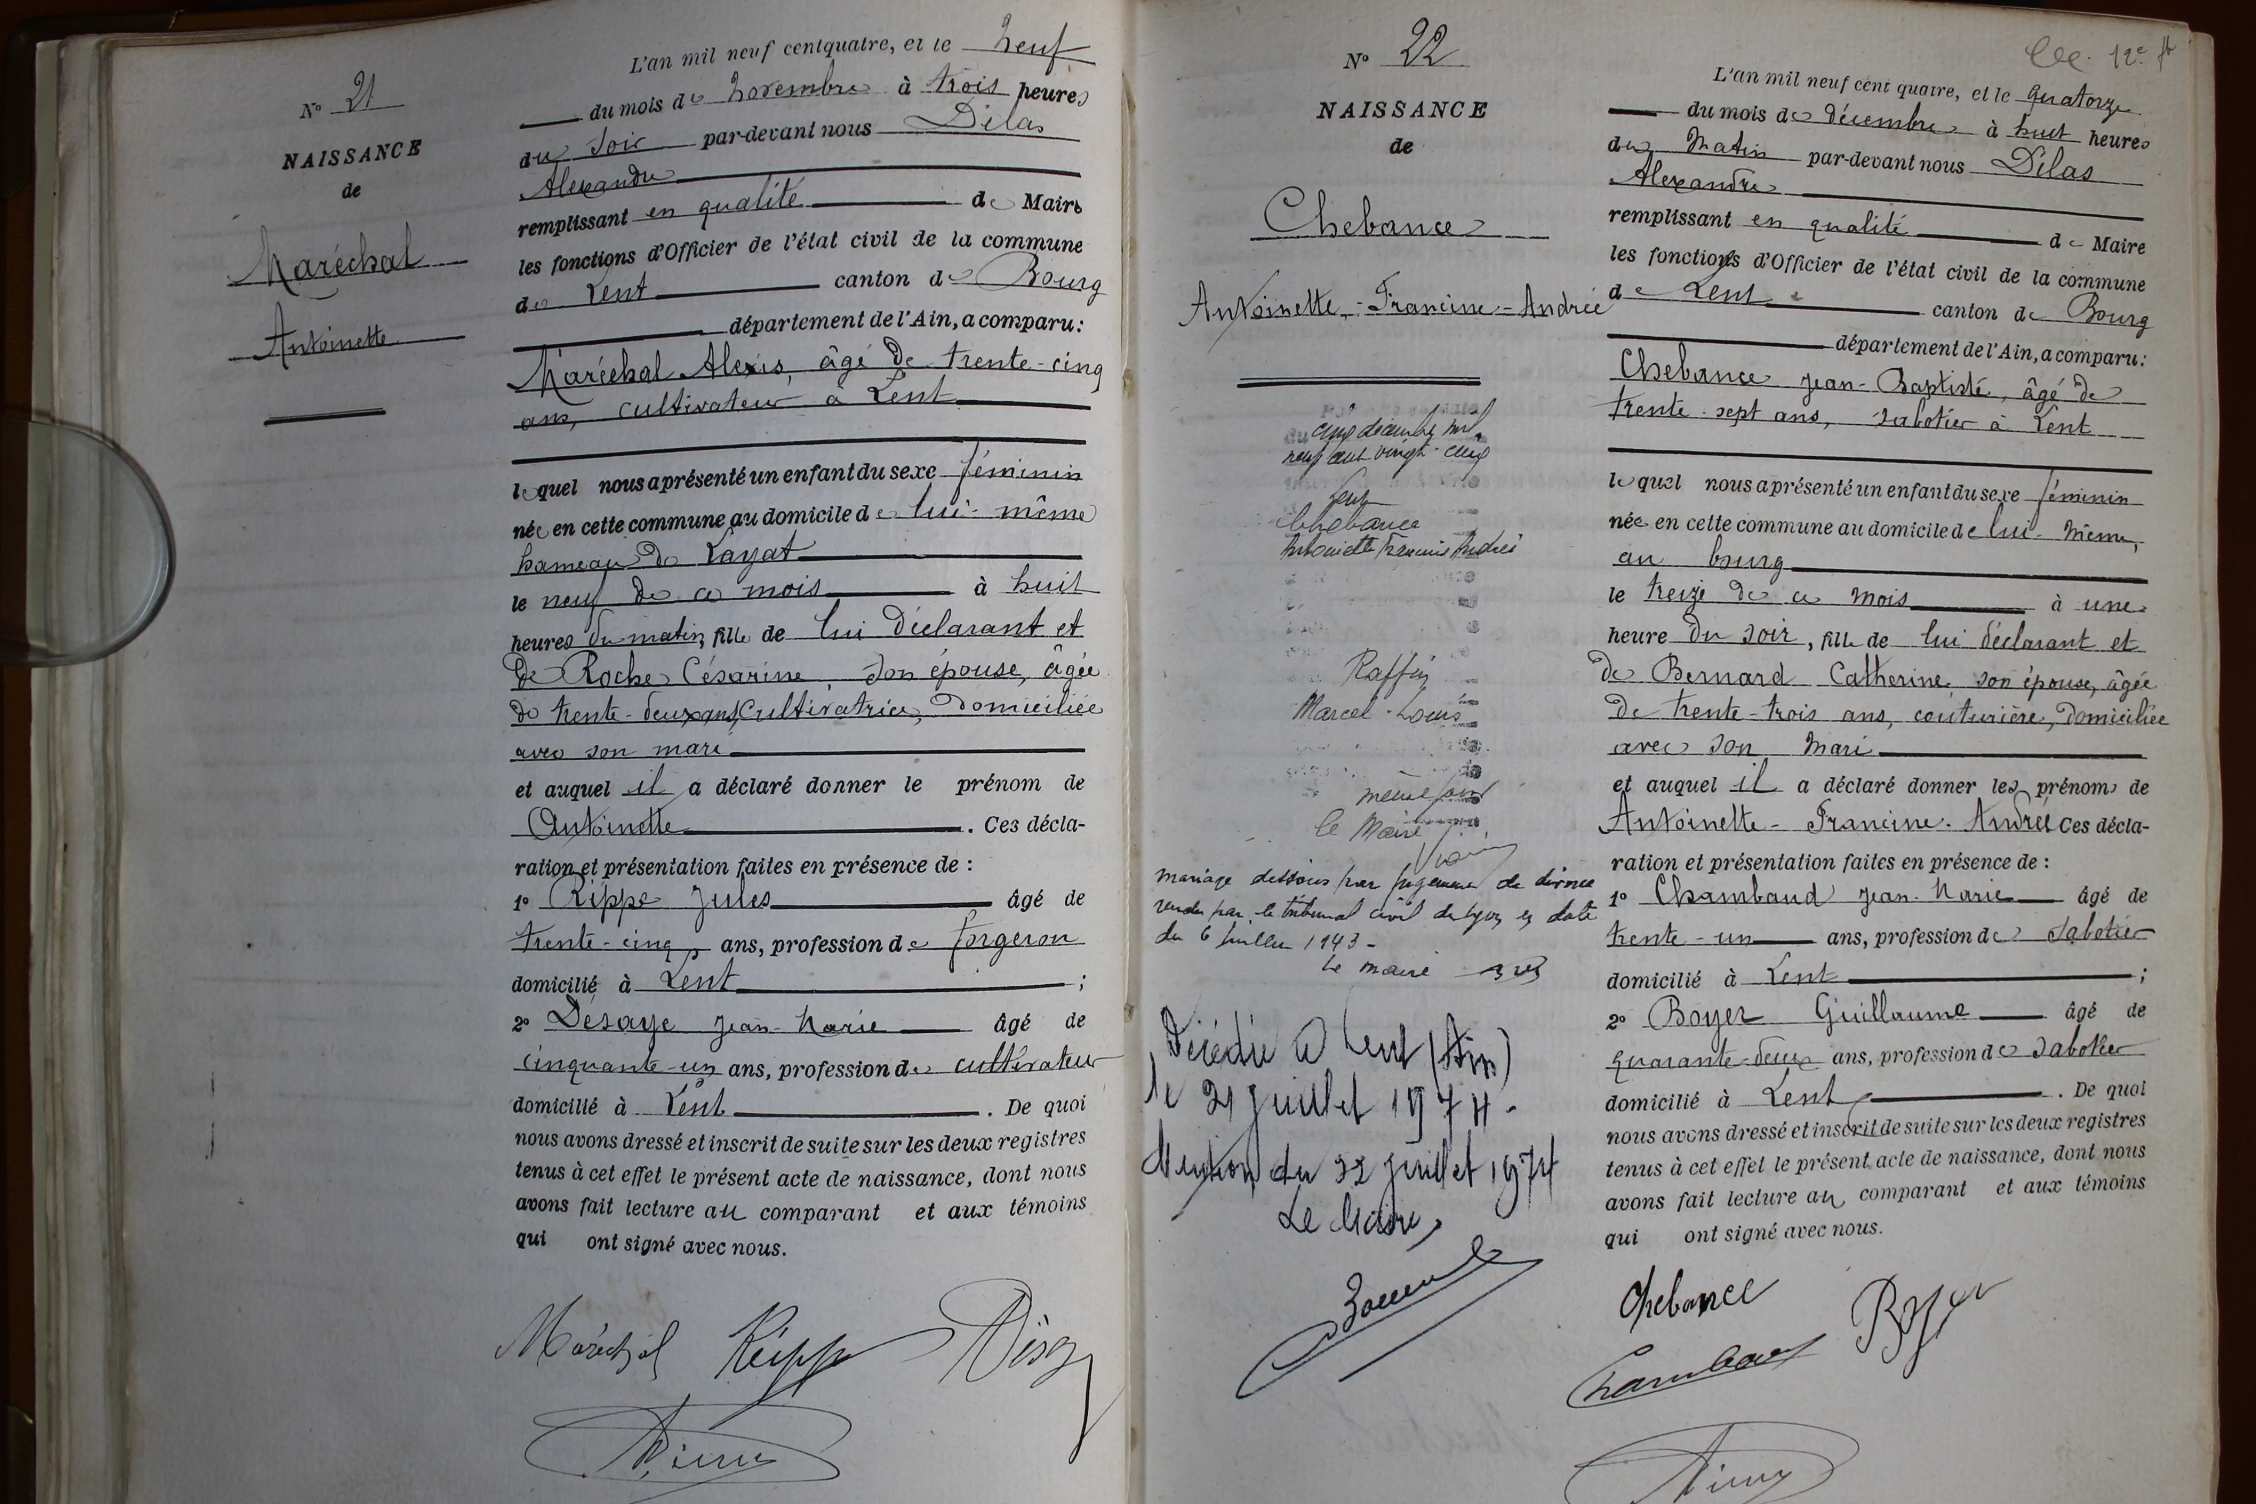 N° 21
NAISSANCE
de
Maréchal
Antoinette
L'an mil neuf cent quatre, et le neuf
du mois de novembre à trois heures
du soir par-devant nous Dilas
Alexandre
remplissant en qualité de Maire
les fonctions d'Officier de l'état civil de la commune
de Lent canton de Bourg
département de l'Ain, a comparu:
Maréchal Alexis, âgé de trente-cinq
ans, cultivateur à Lent
lequel nous a présenté un enfant du sexe féminin
née en cette commune au domicile de lui-même
hameau de Layat
le neuf de ce mois à huit
heures du matin, fille de lui déclarant et
de Roche Césarine, son épouse, âgée
de trente-deux ans, cultivatrice, domiciliée
avec son mari
et auquel il a déclaré donner le prénom de
Antoinette. Ces décla-
ration et présentation faites en présence de :
1° Rippe Jules âgé de
trente-cinq ans, profession de forgeron
domicilié à Lent ;
2° Désaye Jean-Marie âgé de
cinquante-un ans, profession de cultivateur
domicilié à Lent. De quoi
nous avons dressé et inscrit de suite sur les deux registres
tenus à cet effet le présent acte de naissance, dont nous
avons fait lecture au comparant et aux témoins
qui ont signé avec nous.
Maréchal Rippe
N° 22
NAISSANCE
de
Chebance
Antoinette-Francine-Andrée
cinq décembre mil
neuf cent vingt-cinq
Lent
Chebance
Antoinette Francine Andrée
Raffin
Marcel-Louis
même jour
le Maire
mariage dissous par jugement de divorce
rendu par le tribunal civil de Lyon en date
du 6 juillet 1943 -
Le maire
Décédée à Lent (Ain)
le 21 juillet 1974 -
Mention du 22 juillet 1974
Le Maire,
12e
L'an mil neuf cent quatre, et le quatorze
du mois de décembre à huit heures
du matin par-devant nous Dilas
Alexandre
remplissant en qualité de Maire
les fonctions d'Officier de l'état civil de la commune
de Lent canton de Bourg
département de l'Ain, a comparu:
Chebance Jean-Baptiste, âgé de
trente-sept ans, sabotier à Lent
lequel nous a présenté un enfant du sexe féminin
née en cette commune au domicile de lui-même,
au bourg
le treize de ce mois à une
heure du soir, fille de lui déclarant et
de Bernard Catherine, son épouse, âgée
de trente-trois ans, couturière, domiciliée
avec son mari
et auquel il a déclaré donner les prénoms de
Antoinette-Francine-Andrée Ces décla-
ration et présentation faites en présence de :
1° Chambaud Jean-Marie âgé de
trente-un ans, profession de sabotier
domicilié à Lent ;
2° Boyer Guillaume âgé de
quarante-deux ans, profession de sabotier
domicilié à Lent. De quoi
nous avons dressé et inscrit de suite sur les deux registres
tenus à cet effet le présent acte de naissance, dont nous
avons fait lecture au comparant et aux témoins
qui ont signé avec nous.
Chebance Boyer
Chambaud